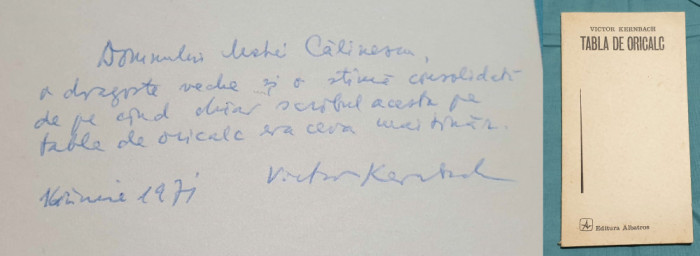 Domnului Matei Călinescu,
o dragoste veche și o stimă consolidată
de pe cînd chiar scribul acesta pe
tabla de oricalc era ceva mai tînăr.
Victor Kernbach
iunie 1971
VICTOR KERNBACH
TABLA DE ORICALC
Editura Albatros